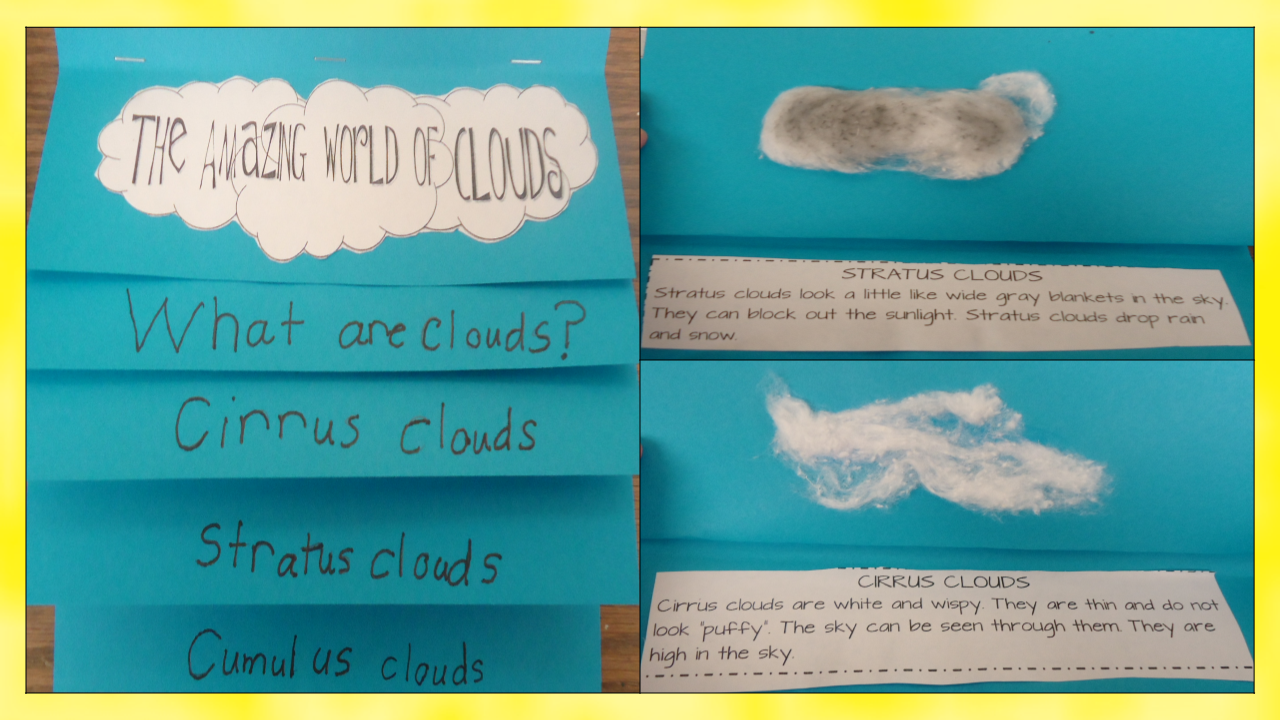 THE AMAZING WORLD OF CLOUDS
What are clouds?
Cirrus clouds
Stratus clouds
Cumulus clouds
STRATUS CLOUDS
Stratus clouds look a little like wide gray blankets in the sky.
They can block out the sunlight. Stratus clouds drop rain
and snow.
CIRRUS CLOUDS
Cirrus clouds are white and wispy. They are thin and do not
look "puffy". The sky can be seen through them. They are
high in the sky.